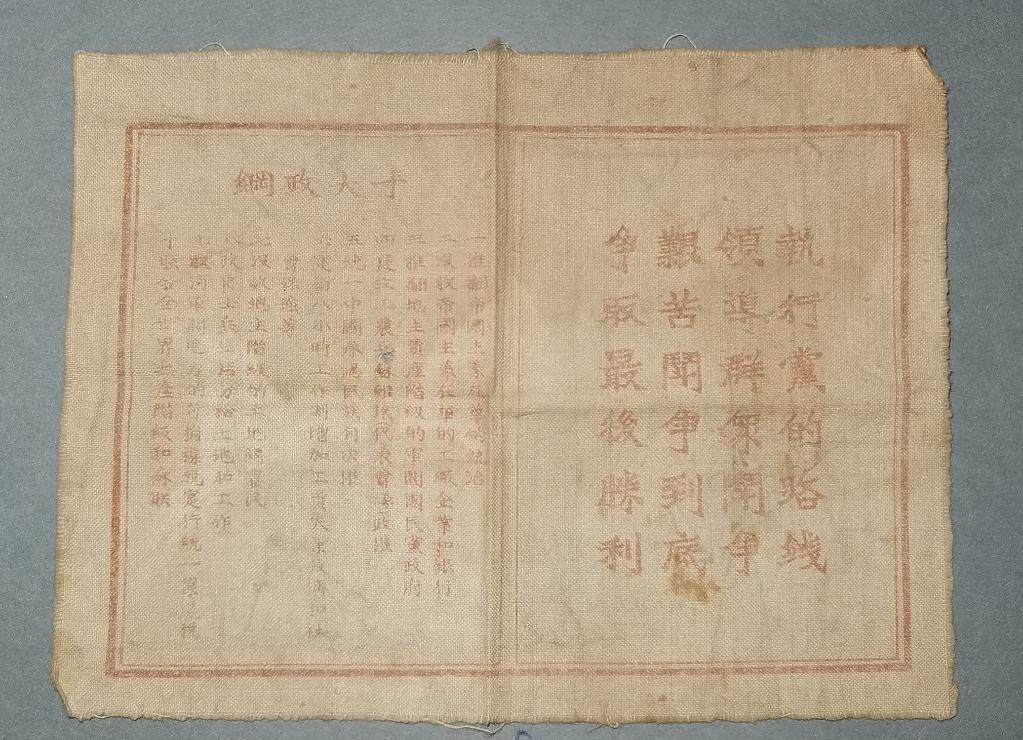 執行黨的路线
領導群衆鬪争
艱苦鬪争到底
争取最後勝利
十大政綱
一推翻帝國主義在華的統治
二沒收帝國主義在華的工厰企業和銀行
三推翻地主資產階級的軍閥國民黨政府
四建立工農兵 代表會議政權
五統一中國承認民族自决權
六定實八小時工作制增加工資失業救濟和社
會保險等
七沒收地主階級的土地歸農民
八 士兵生活 給土地和工作
税实行統一累進税
十联合全世界無產階級和苏联